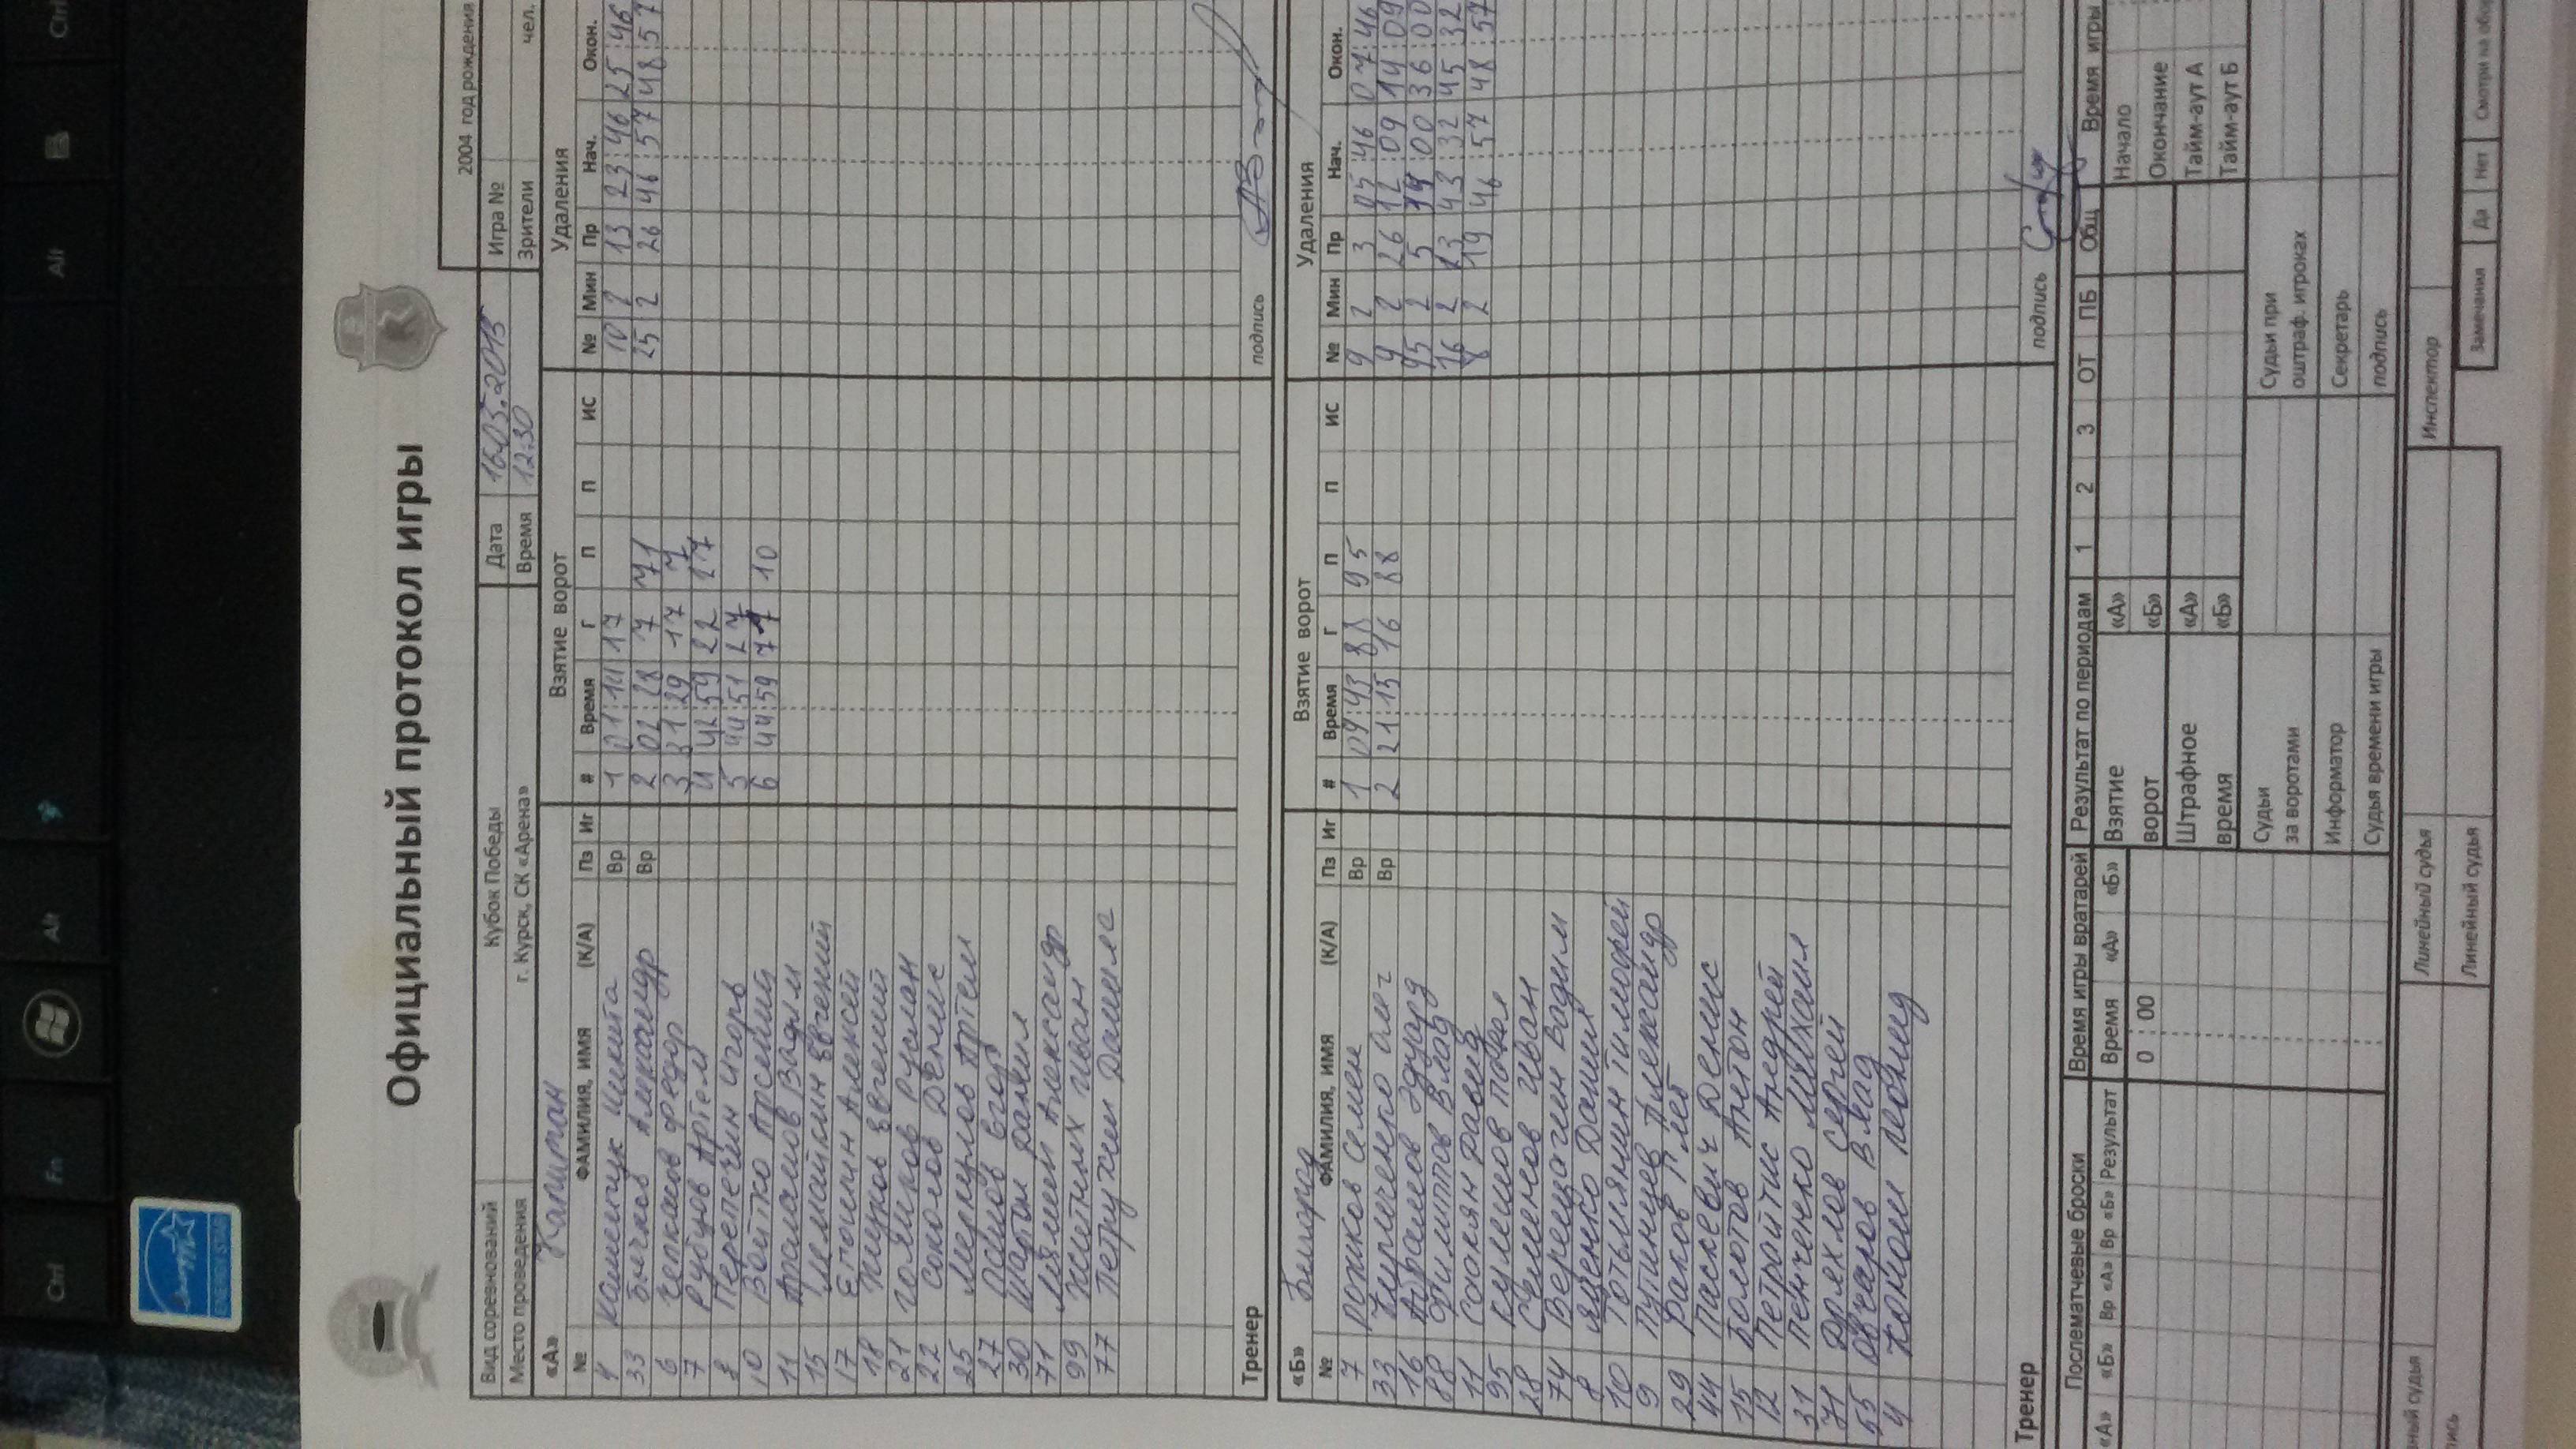 Официальный протокол игры
2004 год рождения
Вид соревнований Кубок Победы Дата 16.05.2015 Игра №
Место проведения г. Курск, СК «Арена» Время 12:30 Зрители чел.
«А» Капитан Взятие ворот Удаления
№ ФАМИЛИЯ, ИМЯ (К/А) Пз Иг # Время Г П П ИС № Мин Пр Нач. Окон.
Никита Вр 1 01:14 17 10 2 13 23:46 25:46
33 Бычков Александр Вр 2 02:28 7 71 25 2 26 46:57 48:57
6 Чепкасов Федор 3 31:29 17 7
7 Рубцов Артем 4 42:59 22 27
Перепечин Игорь 5 44:51 27
10 Войтко Арсений 6 44:59 77 10
11 Вадим
15 Евгений
17 Алексей
18 Жуков Евгений
21 Руслан
22 Соколов Денис
25 Меркулов Артем
27 Егор
30 Шартон Даниил
71 Александр
99 Житных Иван
77 Петрухин Данила
Тренер подпись
«Б» Взятие ворот Удаления
№ ФАМИЛИЯ, ИМЯ (К/А) Пз Иг # Время Г П П ИС № Мин Пр Нач. Окон.
7 Рожков Семен Вр 1 09:43 88 95 9 2 3 05:46 07:46
33 Кириченко Олег Вр 2 21:15 16 88 9 2 26 12:09 14:09
16 Абрамов Эдуард 95 2 5 36:00
88 Филиппов Влад 16 2 43:32 45:32
11 Соакян Давид 8 2 19 46:57 48:57
95 Кулешов Павел
28 Сулемов Иван
74 Верещагин Вадим
8 Ященко Данил
10 Тотьмянин Тимофей
9 Путинцев Александр
29 Раков Глеб
44 Паскевич Денис
15 Болотов Антон
12 Петрайтис Андрей
31 Пенченко Михаил
71 Дряхлов Сергей
55 Овчаров Влад
4 Леонид
Тренер подпись
Послематчевые броски Время игры вратарей Результат по периодам 1 2 3 ОТ ПБ Общ Время игры
«А» «Б» Вр «А» Вр «Б» Результат Время «А» «Б» Взятие ворот «А» Начало
0 : 00 «Б» Окончание
Штрафное время «А» Тайм-аут А
«Б» Тайм-аут Б
Судьи за воротами Судьи при оштраф. игроках
Информатор Секретарь
Судья времени игры подпись
Линейный судья Инспектор
Линейный судья Замечания Да Нет